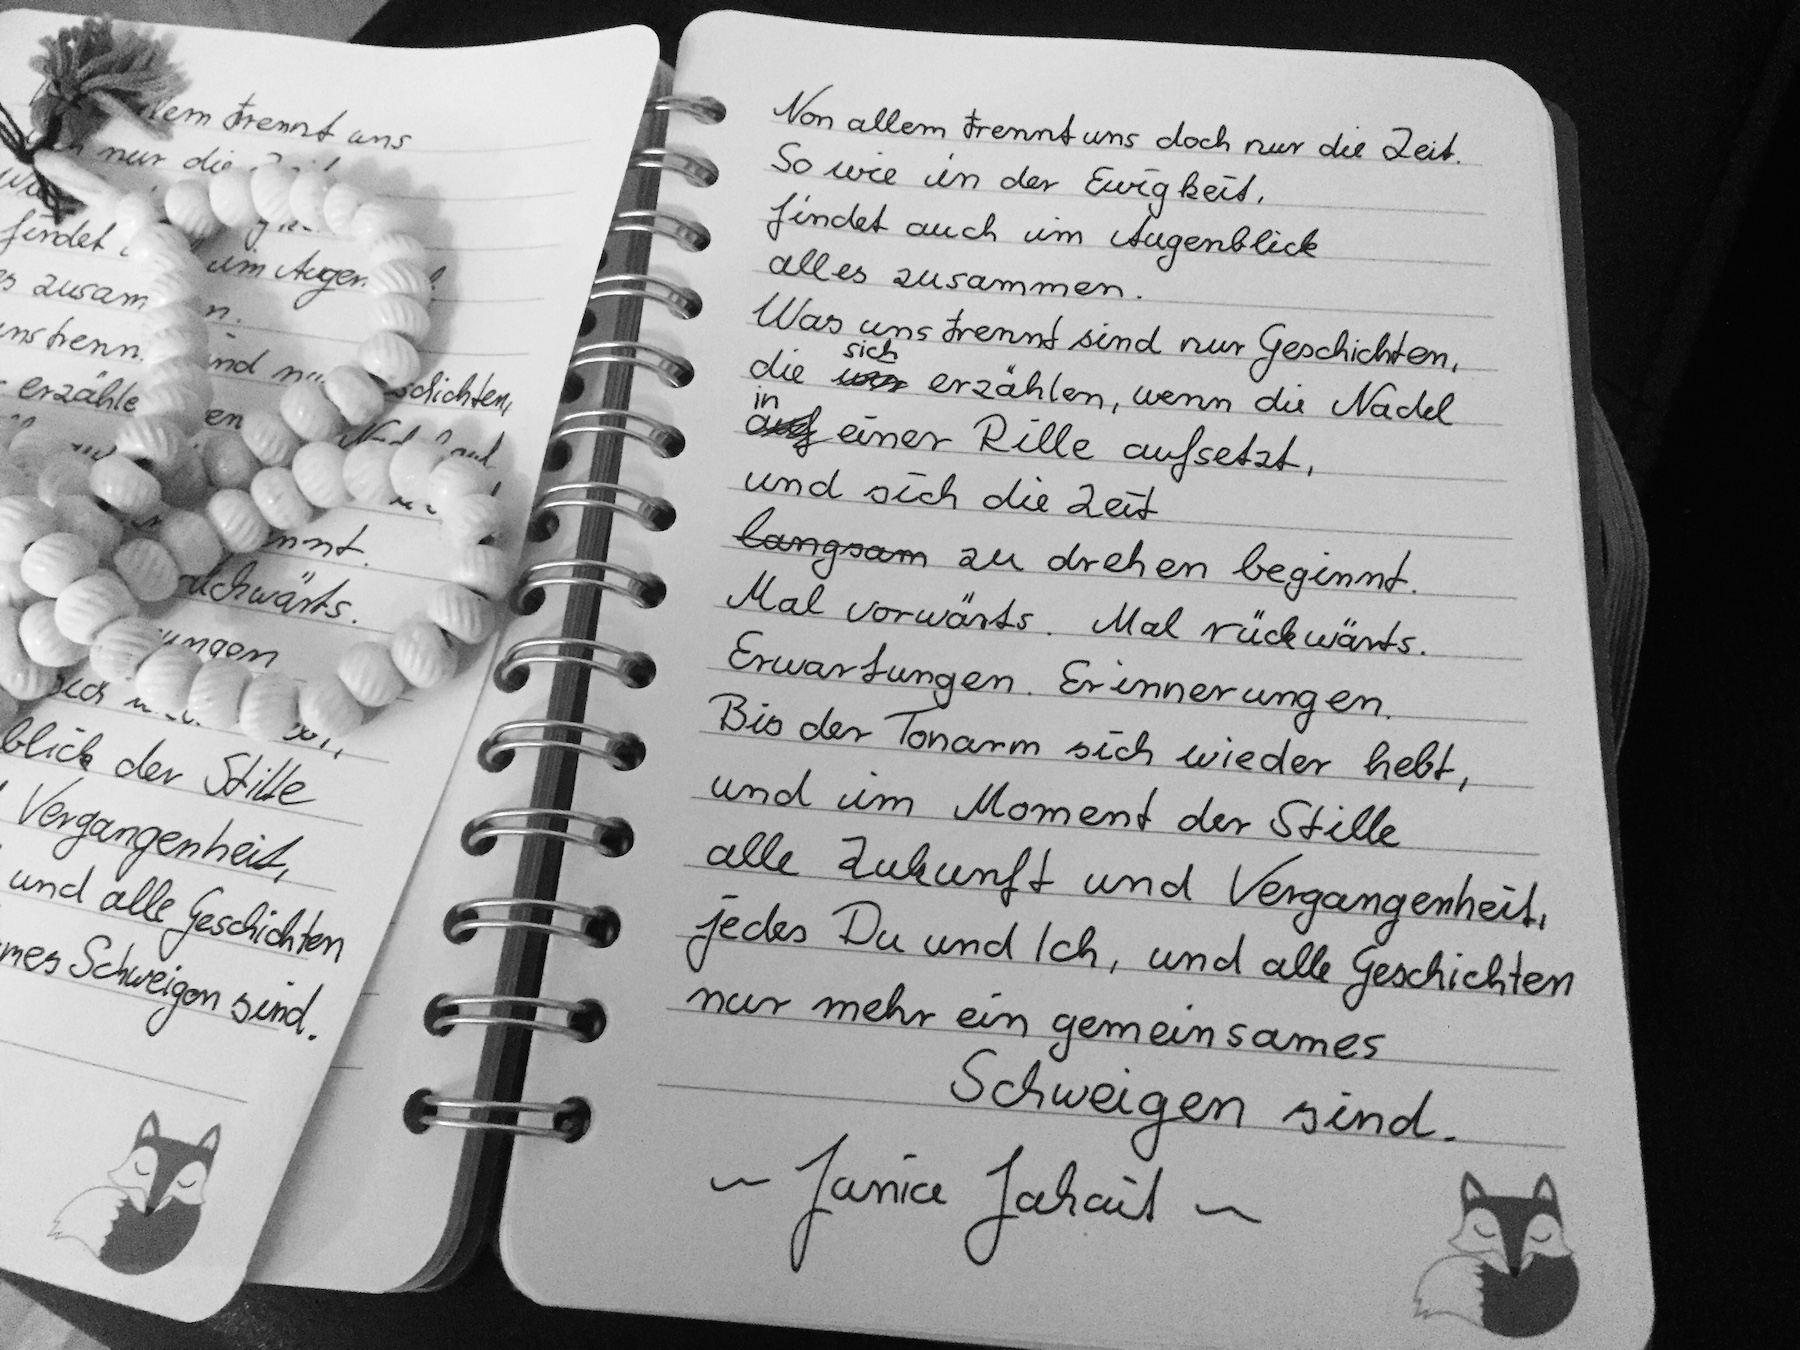 lem trennt uns
nur die
findet
um Augen
es zusam n.
uns trenn. ind nu schichten,
erzähle en
nnt.
ückwärts.
ungen
sich
blick der Stille
Vergangenheit,
und alle Geschichten
mes Schweigen sind.
Von allem trennt uns doch nur die Zeit.
So wie in der Ewigkeit,
findet auch im Augenblick
alles zusammen.
Was uns trennt sind nur Geschichten,
sich
die wir erzählen, wenn die Nadel
in
auf einer Rille aufsetzt,
und sich die Zeit
langsam zu drehen beginnt.
Mal vorwärts. Mal rückwärts.
Erwartungen. Erinnerungen.
Bis der Tonarm sich wieder hebt,
und im Moment der Stille
alle Zukunft und Vergangenheit,
jedes Du und Ich, und alle Geschichten
nur mehr ein gemeinsames
Schweigen sind.
~ Janice Jakait ~